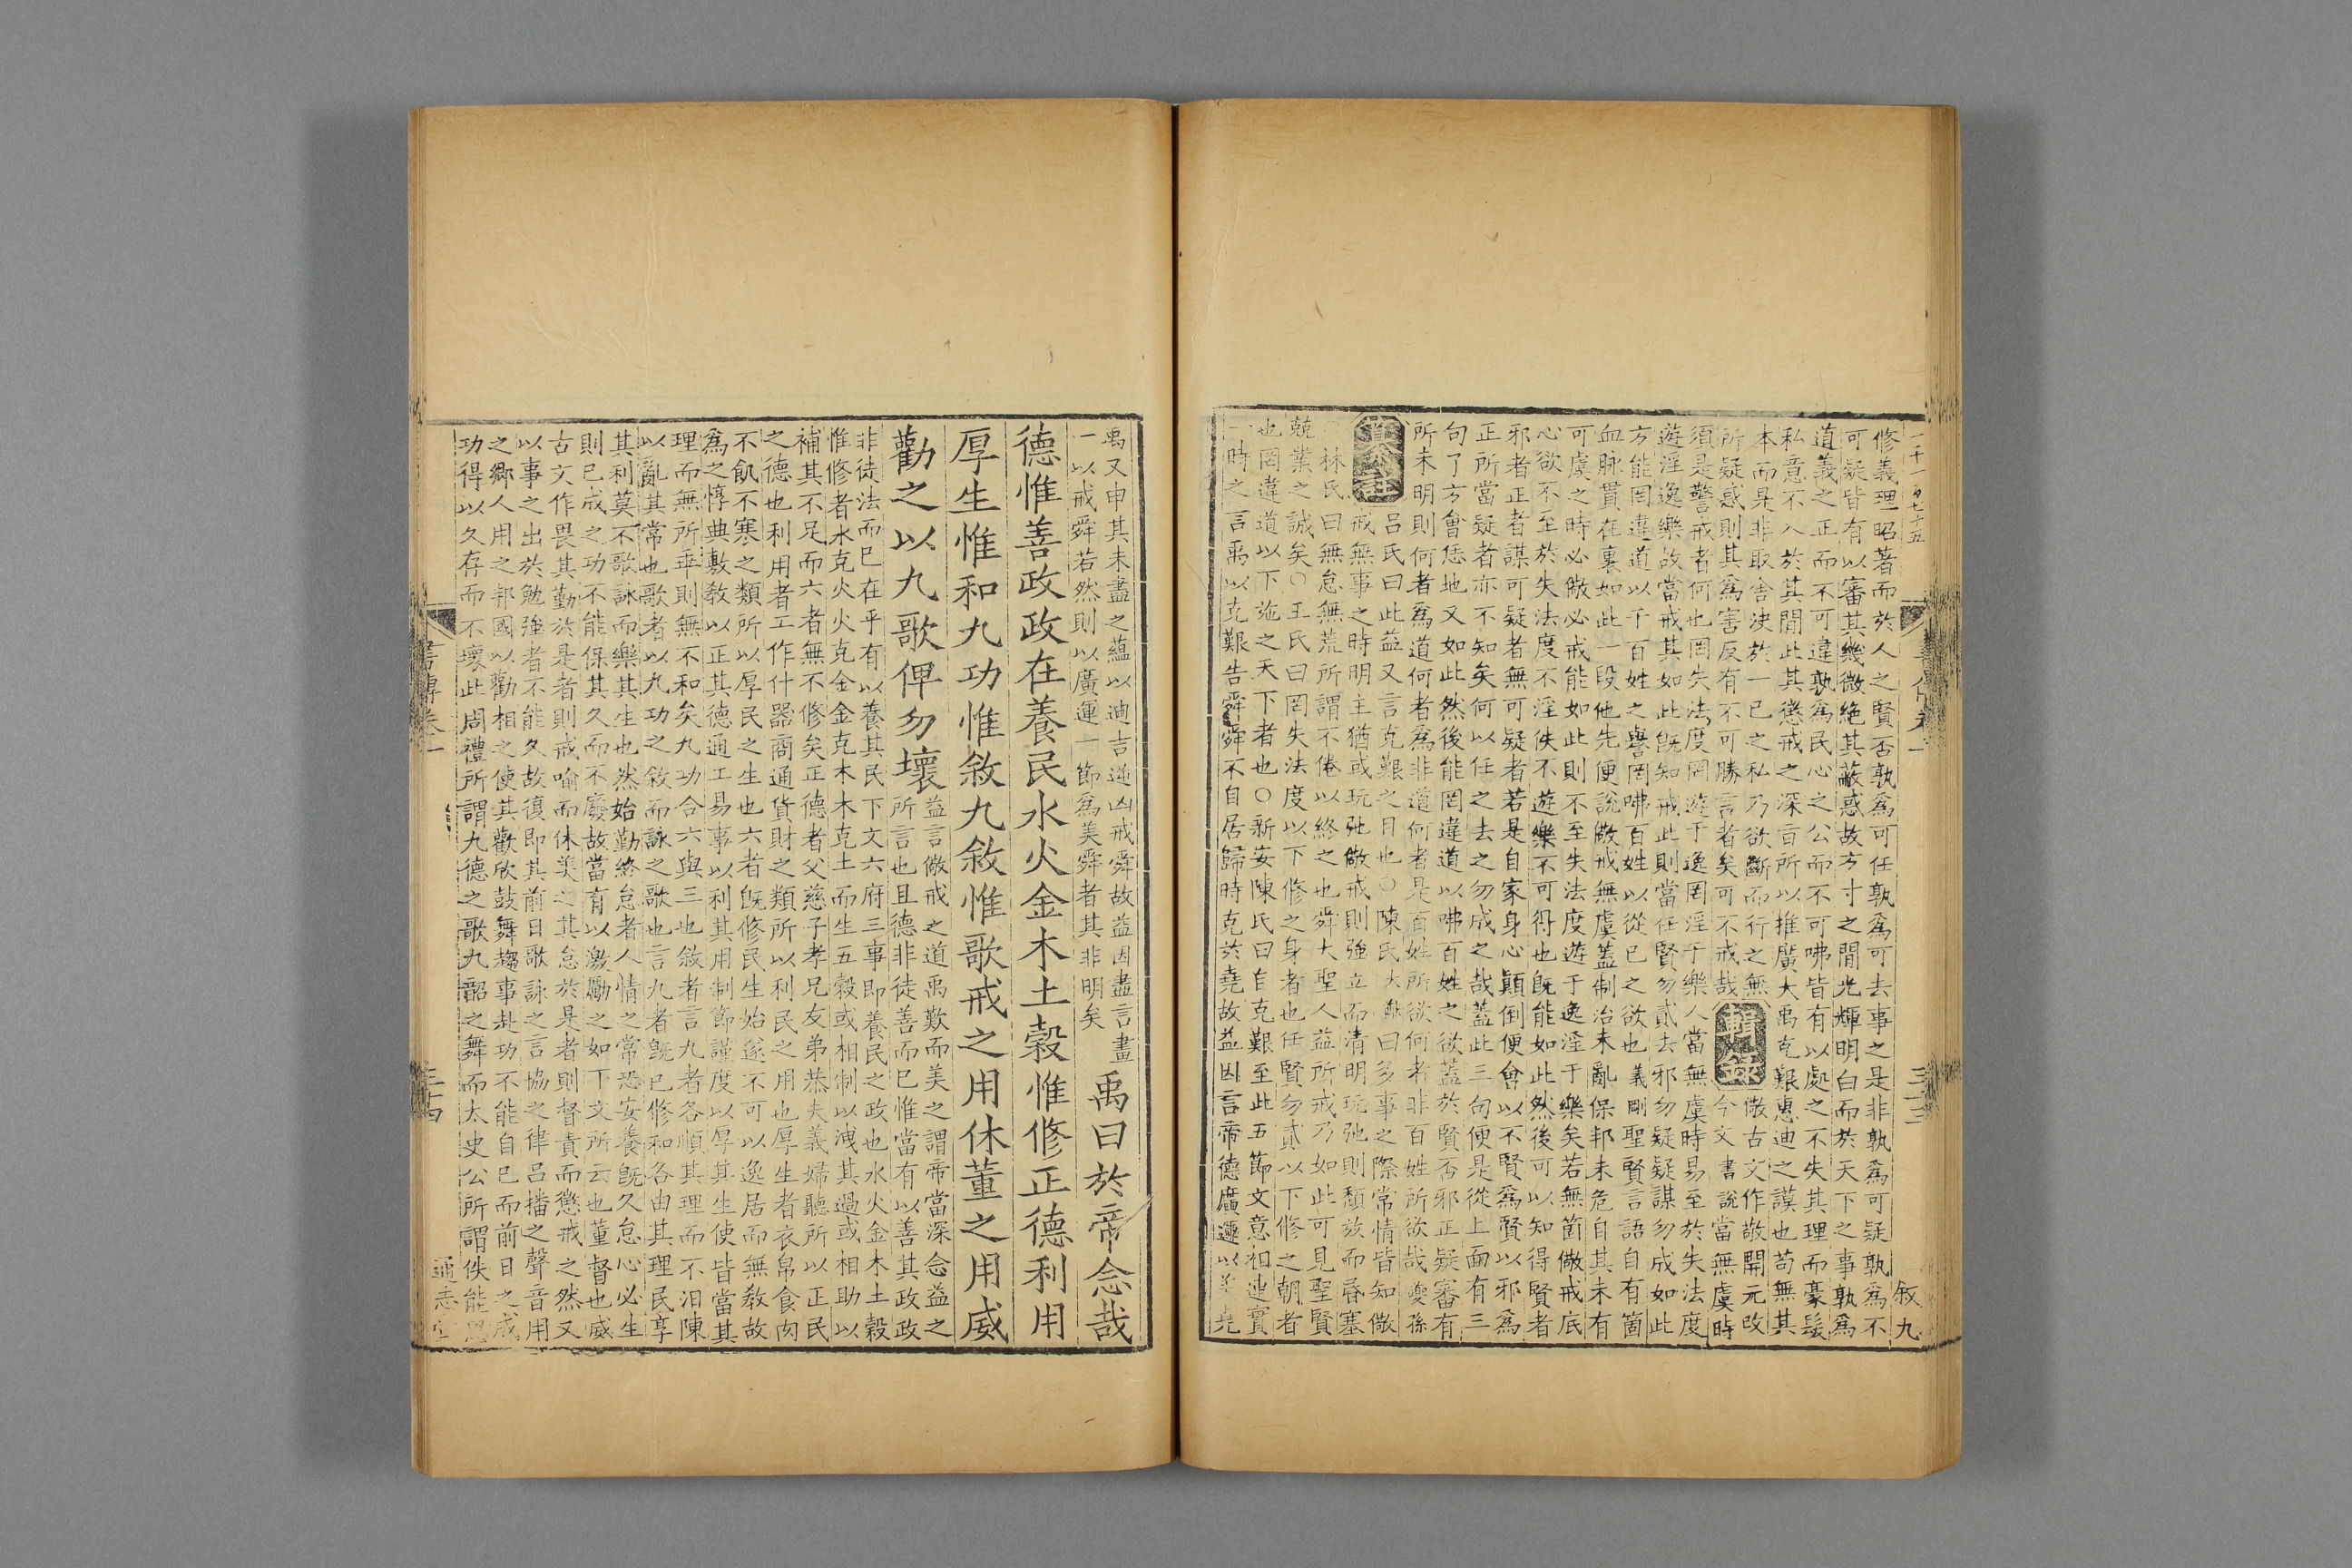 修義理昭著而於人之賢否孰爲可任孰爲可去事之是非孰爲可疑孰爲不
可疑皆有以審其幾微絕其蔽惑故方寸之間光輝明白而於天下之事孰爲
道義之正而不可違孰爲民心之公而不可咈皆有以處之不失其理而豪髮
私意不入於其間此其懲戒之深旨所以推廣大禹克艱惠迪之謨也苟無其
本而是非取舍決於一己之私乃欲斷而行之無
所疑惑則其爲害反有不可勝言者矣可不戒哉
輯錄
儆古文作敬開元改
今文書說當無虞時
須是警戒者何也罔失法度罔遊于逸罔淫于樂人當無虞時易至於失法度
遊淫逸樂故當戒其如此既知戒此則當任賢勿貳去邪勿疑疑謀勿成如此
方能罔違道以干百姓之譽罔咈百姓以從己之欲也義剛聖賢言語自有箇
血脉貫在裏如此一段他先便說儆戒無虞蓋制治未亂保邦未危自其未有
可虞之時必儆必戒能如此則不至失法度遊于逸淫于樂矣若無箇儆戒底
心欲不至於失法度不淫佚不遊樂不可得也既能如此然後可以知得賢者
邪者正者謀可疑者無可疑者若是自家身心顚倒便會以不賢爲賢以邪爲
正所當疑者亦不知矣何以任之去之勿成之哉蓋此三句便是從上面有三
句了方會恁地又如此然後能罔違道以咈百姓之欲蓋於賢否邪正疑審有
所未明則何者爲道何者爲非道何者是百姓所欲何者非百姓所欲哉夔孫
纂註
呂氏曰此益又言克艱之目也○陳氏大猷曰多事之際常情皆知儆
戒無事之時明主猶或玩弛儆戒則強立而清明玩弛則頹放而昏塞
林氏曰無怠無荒所謂不倦以終之也舜大聖人益所戒乃如此可見聖賢
兢業之誠矣○王氏曰罔失法度以下修之身者也任賢勿貳以下修之朝者
也罔違道以下施之天下者也○新安陳氏曰自克艱至此五節文意相連實
一時之言禹以克艱告舜舜不自居歸時克於堯故益因言帝德廣運以美堯
二千一百七十五
叙九
書傳卷一
三十三
禹又申其未盡之蘊以迪吉逆凶戒舜故益因盡言畫
一以戒舜若然則以廣運一節爲美舜者其非明矣
禹曰於帝念哉
德惟善政政在養民水火金木土穀惟修正德利用
厚生惟和九功惟敘九敘惟歌戒之用休董之用威
勸之以九歌俾勿壞
益言儆戒之道禹歎而美之謂帝當深念益之
所言也且德非徒善而已惟當有以善其政政
非徒法而已在乎有以養其民下文六府三事即養民之政也水火金木土穀
惟修者水克火火克金金克木木克土而生五穀或相制以洩其過或相助以
補其不足而六者無不修矣正德者父慈子孝兄友弟恭夫義婦聽所以正民
之德也利用者工作什器商通貨財之類所以利民之用也厚生者衣帛食肉
不飢不寒之類所以厚民之生也六者既修民生始遂不可以逸居而無教故
爲之惇典敷教以正其德通工易事以利其用制節謹度以厚其生使皆當其
理而無所乖則無不和矣九功合六與三也敘者言九者各順其理而不汨陳
以亂其常也歌者以九功之敘而詠之歌也言九者既已修和各由其理民享
其利莫不歌詠而樂其生也然始勤終怠者人情之常恐安養既久怠心必生
則已成之功不能保其久而不廢故當有以激勵之如下文所云也董督也威
古文作畏其勤於是者則戒喻而休美之其怠於是者則督責而懲戒之然又
以事之出於勉強者不能久故復即其前日歌詠之言協之律呂播之聲音用
之鄉人用之邦國以勸相之使其歡欣鼓舞趨事赴功不能自已而前日之成
功得以久存而不壞此周禮所謂九德之歌九韶之舞而太史公所謂佚能思
書傳卷一
三十四
通志堂